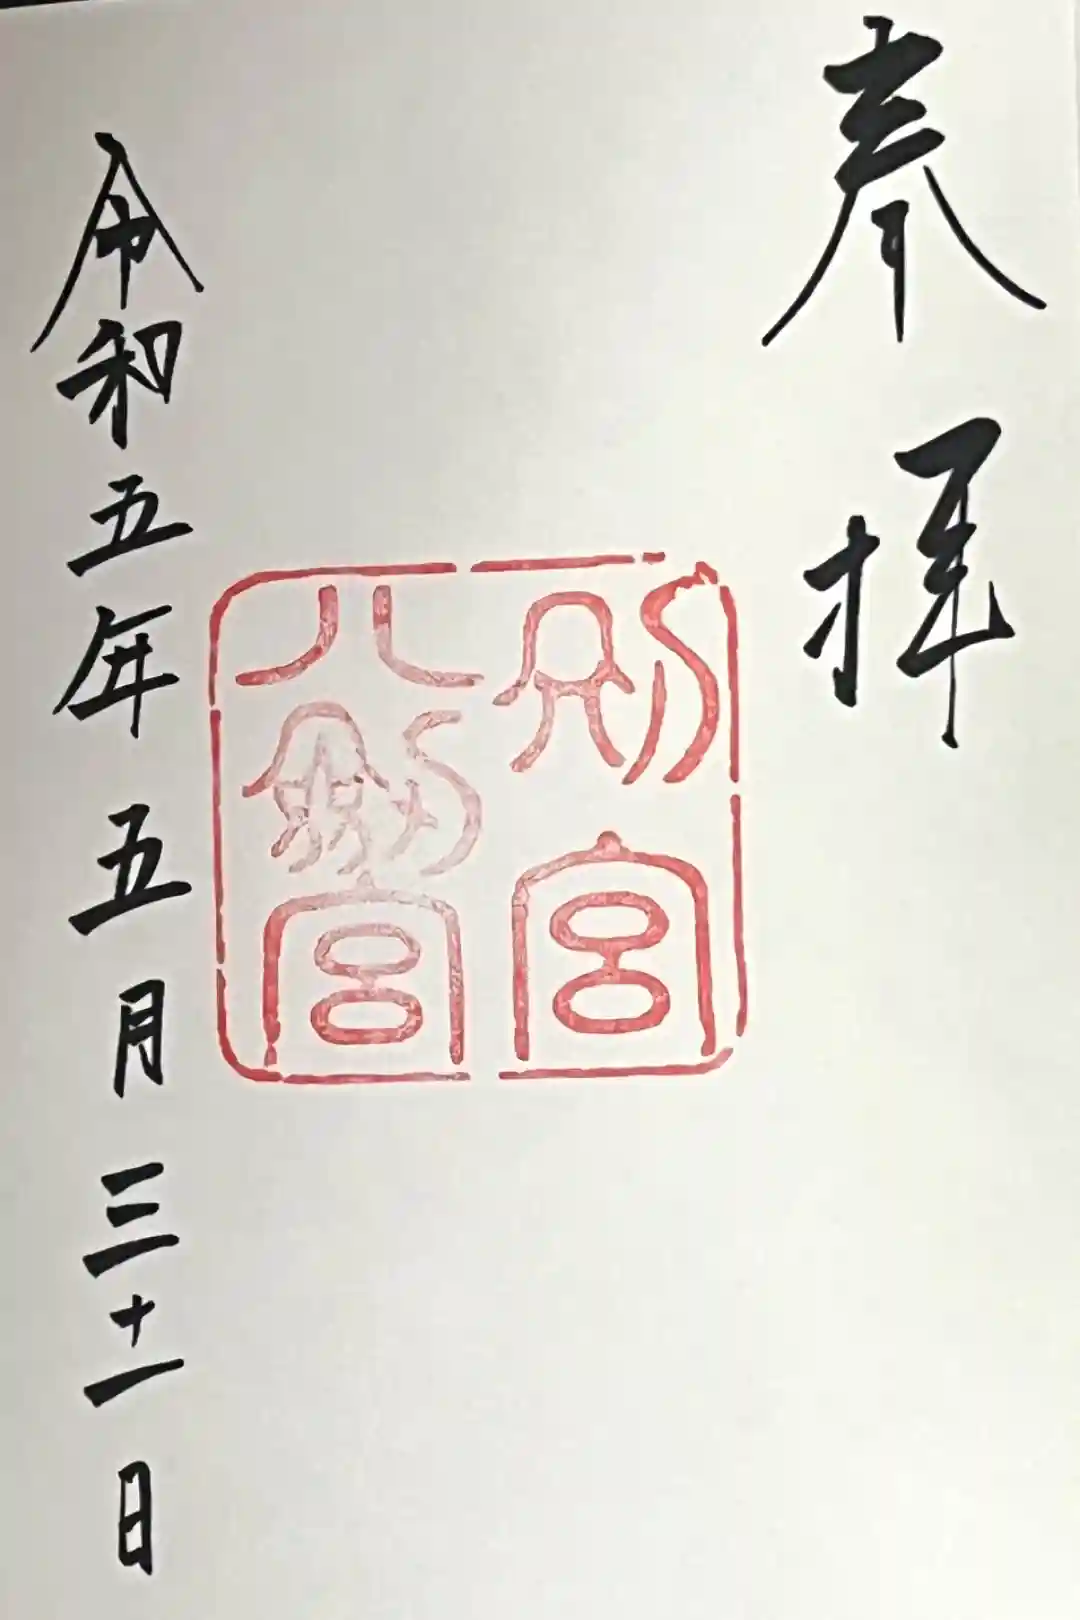 奉拝
別宮
八剱宮
令和五年五月三十一日